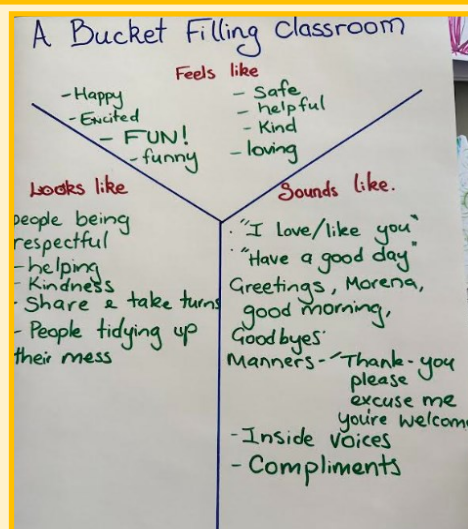 A Bucket Filling Classroom
Feels like
- Happy
- Excited
- FUN!
- funny
- Safe
- helpful
- Kind
- loving
Looks like
people being
respectful
- helping
- Kindness
- Share & take turns
- People tidying up
their mess
Sounds like.
· "I love/like you"
· "Have a good day"
Greetings, Morena,
good morning,
Goodbyes.
Manners - "Thank-you
please
excuse me
you're welcome
- Inside voices
- Compliments